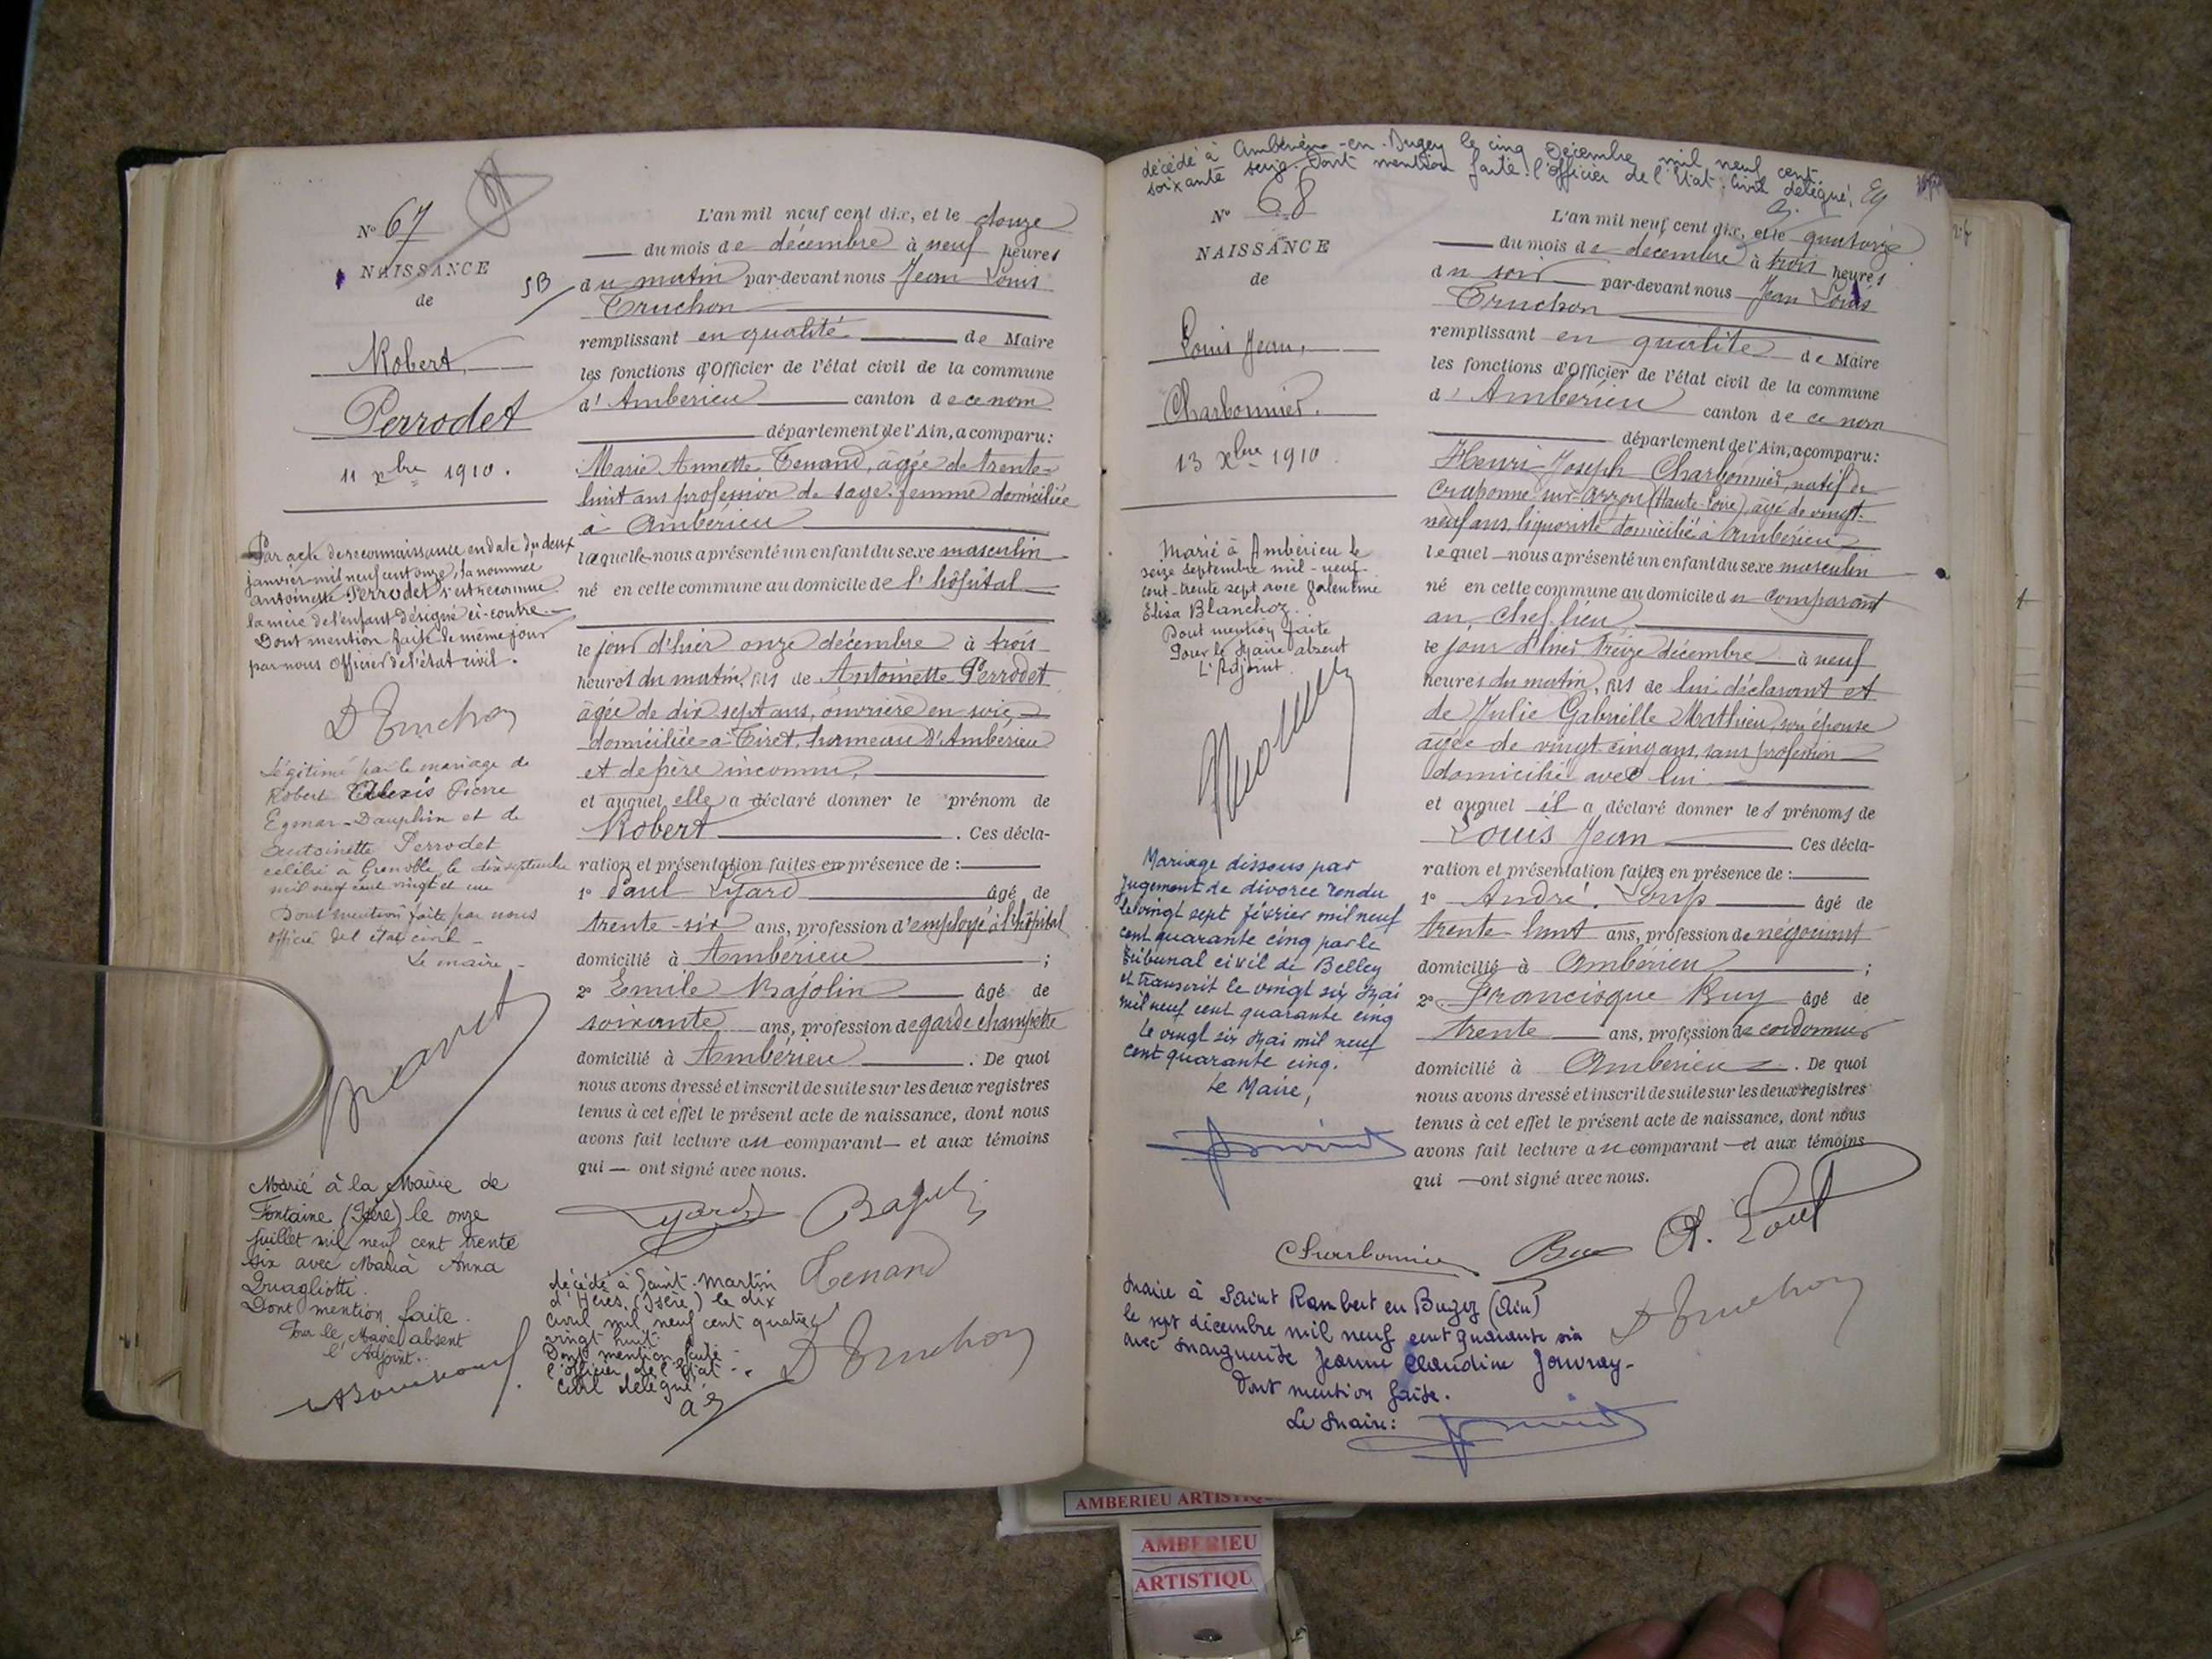 N° 67
NAISSANCE
de
Robert
Perrodet
11 xbre 1910.
Par acte de reconnaissance en date du deux
janvier mil neuf cent onze, la nommée
Antoinette Perrodet s'est reconnue
la mère de l'enfant désigné ci-contre.
Dont mention faite le même jour
par nous Officier de l'état civil.
D Truchon
Légitimé par le mariage de
Robert Alexis Pierre
Egmar-Dauphin et de
Antoinette Perrodet
célébré à Grenoble, le dix septembre
mil neuf cent vingt et un
Dont mention faite par nous
officier de l'état civil -
Le maire -
Marié à la Mairie de
Fontaine (Isère) le onze
juillet mil neuf cent trente
six avec Maria Anna
Quagliotti.
Dont mention faite.
Pour le Maire absent
l'Adjoint.
L'an mil neuf cent dix, et le douze
du mois de décembre à neuf heures
du matin par-devant nous Jean Louis
Truchon
remplissant en qualité de Maire
les fonctions d'Officier de l'état civil de la commune
d'Ambérieu canton de ce nom
département de l'Ain, a comparu:
Marie Annette Tenand, âgée de trente-
huit ans profession de sage-femme domiciliée
à Ambérieu
laquelle nous a présenté un enfant du sexe masculin
né en cette commune au domicile de l'hôpital
le jour d'hier onze décembre à trois
heures du matin, fils de Antoinette Perrodet
âgée de dix sept ans, ouvrière en soie,
domiciliée à Tiret, hameau d'Ambérieu
et de père inconnu,
et auquel elle a déclaré donner le prénom de
Robert. Ces décla-
ration et présentation faites en présence de :
1° Paul Lyard âgé de
trente-six ans, profession d'employé à l'hôpital
domicilié à Ambérieu ;
2° Emile Bajolin âgé de
soixante ans, profession de garde champêtre
domicilié à Ambérieu. De quoi
nous avons dressé et inscrit de suite sur les deux registres
tenus à cet effet le présent acte de naissance, dont nous
avons fait lecture au comparant et aux témoins
qui ont signé avec nous.
Lyard Bajolin
Tenand
D Truchon
décédé à Saint-Martin
d'Hères, (Isère) le dix
avril mil neuf cent quatre
vingt huit.
Dont mention faite
l'officier de l'Etat
Civil délégué
décédé à Ambérieu-en-Bugey le cinq Décembre mil neuf cent
soixante seize. Dont mention faite. l'officier de l'Etat Civil délégué,
N° 68
NAISSANCE
de
Louis Jean,
Charbonnier.
13 xbre 1910.
Marié à Ambérieu le
seize septembre mil-neuf-
cent-trente sept avec Valentine
Elisa Blanchoz.
Dont mention faite
Pour le Maire absent
L'Adjoint
Mariage dissous par
Jugement de divorce rendu
le vingt sept février mil neuf
cent quarante cinq par le
Tribunal civil de Belley
et transcrit le vingt six Mai
mil neuf cent quarante cinq
Le vingt six Mai mil neuf
cent quarante cinq.
Le Maire,
L'an mil neuf cent dix, et le quatorze
du mois de décembre à trois heures
du soir par-devant nous Jean Louis
Truchon
remplissant en qualité de Maire
les fonctions d'Officier de l'état civil de la commune
d'Ambérieu canton de ce nom
département de l'Ain, a comparu:
Henri Joseph Charbonnier, natif de
Craponne-sur-Arzon (Haute-Loire), âgé de vingt-
neuf ans, liquoriste domicilié à Ambérieu
lequel nous a présenté un enfant du sexe masculin
né en cette commune au domicile du comparant
au chef-lieu
le jour d'hier treize décembre à neuf
heures du matin, fils de lui déclarant et
de Julie Gabrielle Mathieu, son épouse
âgée de vingt cinq ans, sans profession
domicilié avec lui
et auquel il a déclaré donner les prénoms de
Louis Jean Ces décla-
ration et présentation faites en présence de :
1° André Loup âgé de
trente-huit ans, profession de négociant
domicilié à Ambérieu ;
2° Francisque Buy âgé de
trente ans, profession de cordonnier
domicilié à Ambérieu. De quoi
nous avons dressé et inscrit de suite sur les deux registres
tenus à cet effet le présent acte de naissance, dont nous
avons fait lecture au comparant et aux témoins
qui ont signé avec nous.
Charbonnier Buy A. Loup
D Truchon
Marié à Saint Rambert en Bugey (Ain)
le sept décembre mil neuf cent quarante six
avec Marguerite Jeanne Claudine Jouvray-
Dont mention faite.
Le Maire:
AMBERIEU ARTISTIQUE
AMBERIEU
ARTISTIQU